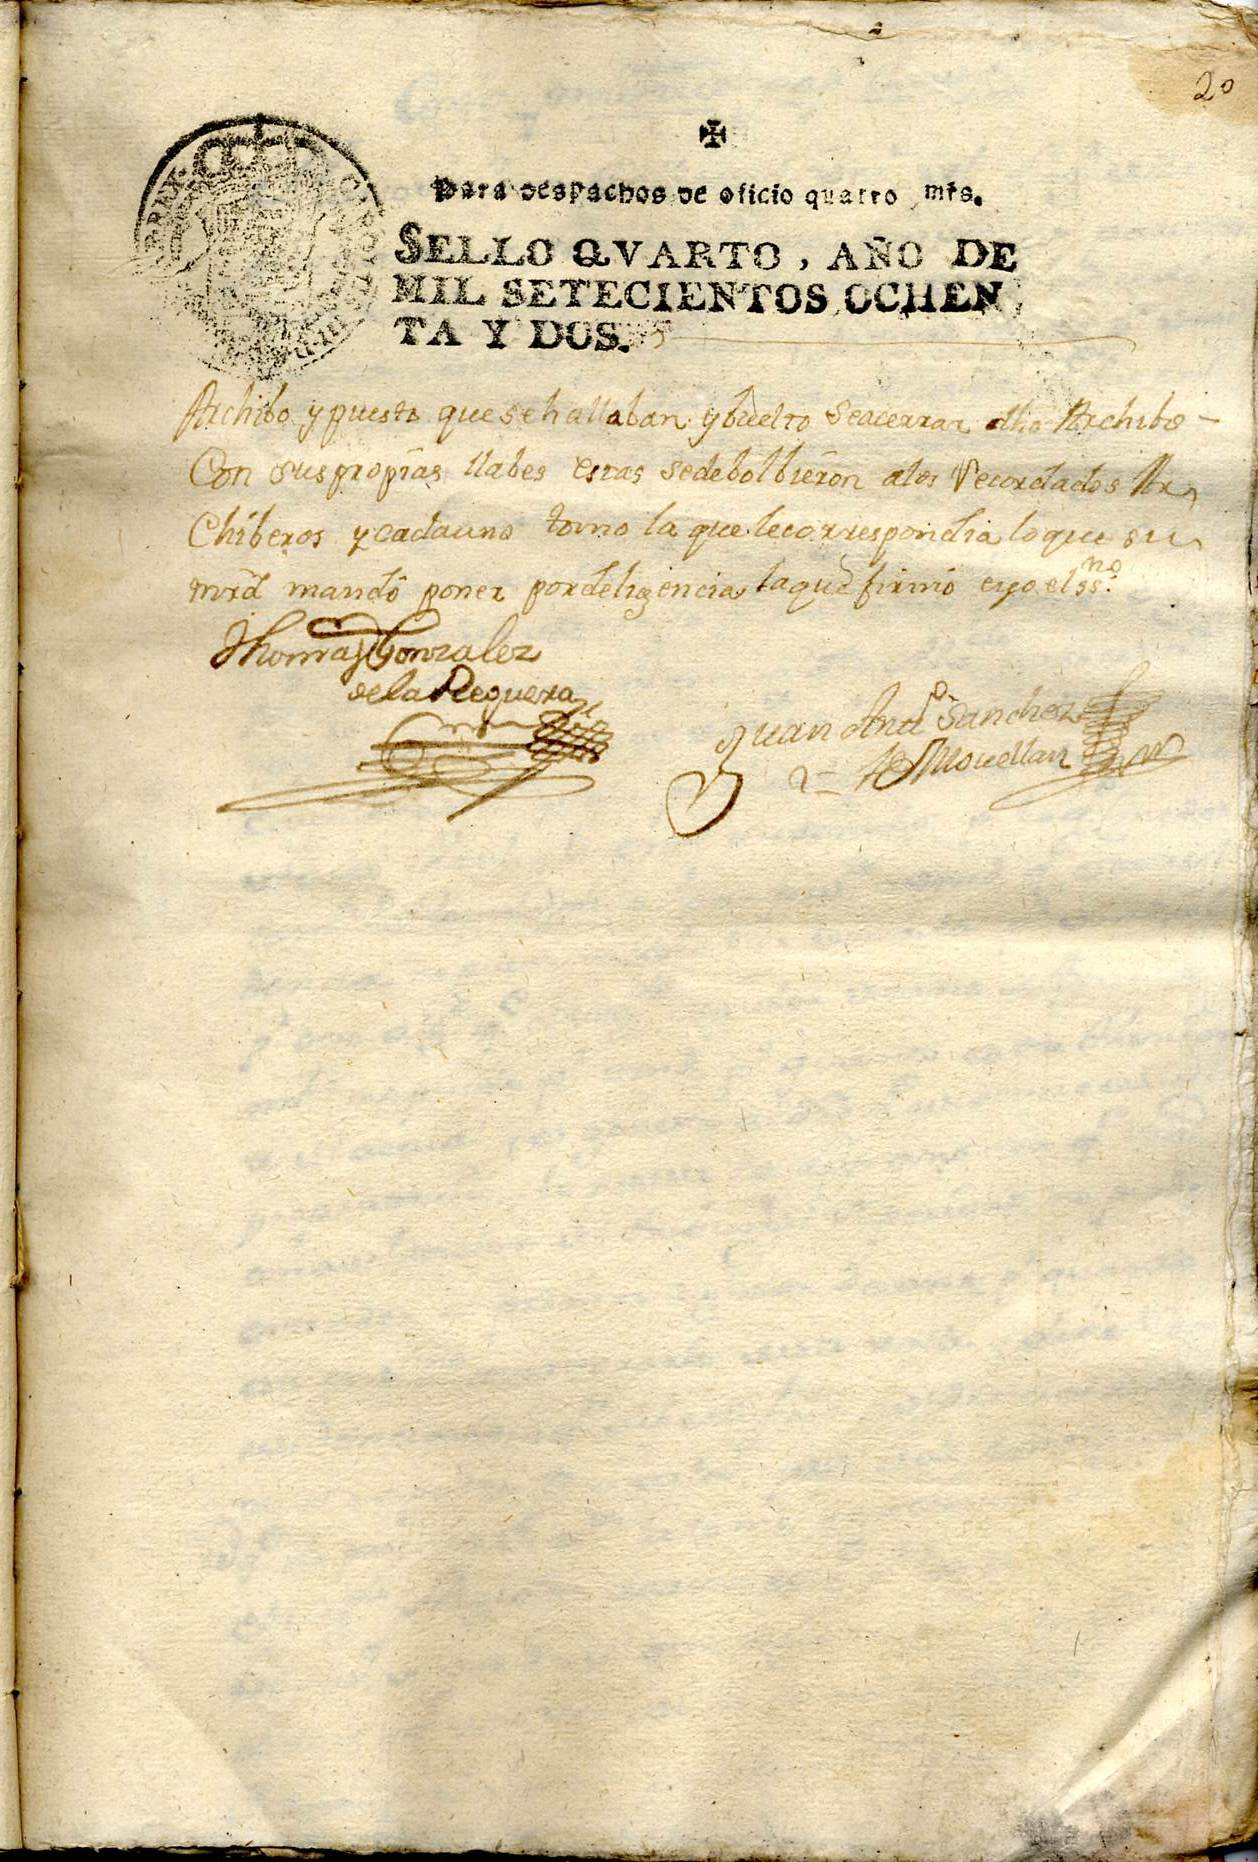 20
✠
Para despachos de oficio quatro mrs.
SELLO QVARTO, AÑO DE
MIL SETECIENTOS OCHEN
TA Y DOS.
Archibo y puesto que se hallaban y buelto Seacerrar dho Archibo -
Con sus propias llabes estas sedebolbieron alos Recordados Ar
Chiberos y cadauno tomo la que lecorrespondia loque su
mrd mandó poner pordeligencia laque firmó eyo el ssno.
Thomas Gonzalez
dela Reguera
Juan Antto Sanchez
de Movellan